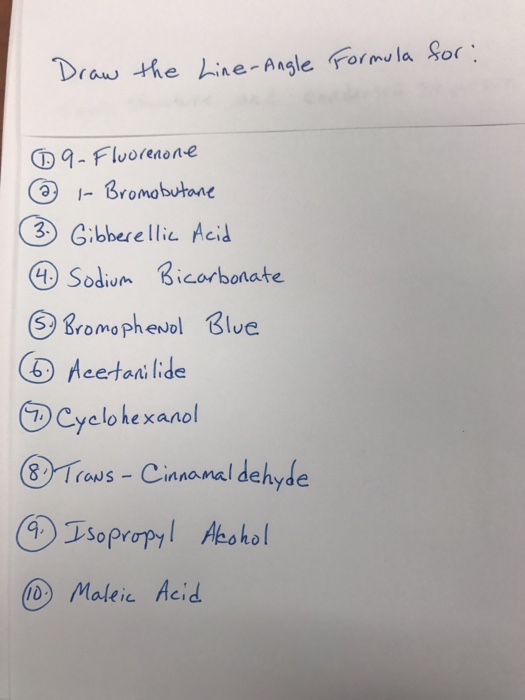 Draw the Line-Angle Formula for:
1. 9-Fluorenone
2. 1-Bromobutane
3. Gibberellic Acid
4. Sodium Bicarbonate
5. Bromophenol Blue
6. Acetanilide
7. Cyclohexanol
8. Trans-Cinnamaldehyde
9. Isopropyl Alcohol
10. Maleic Acid